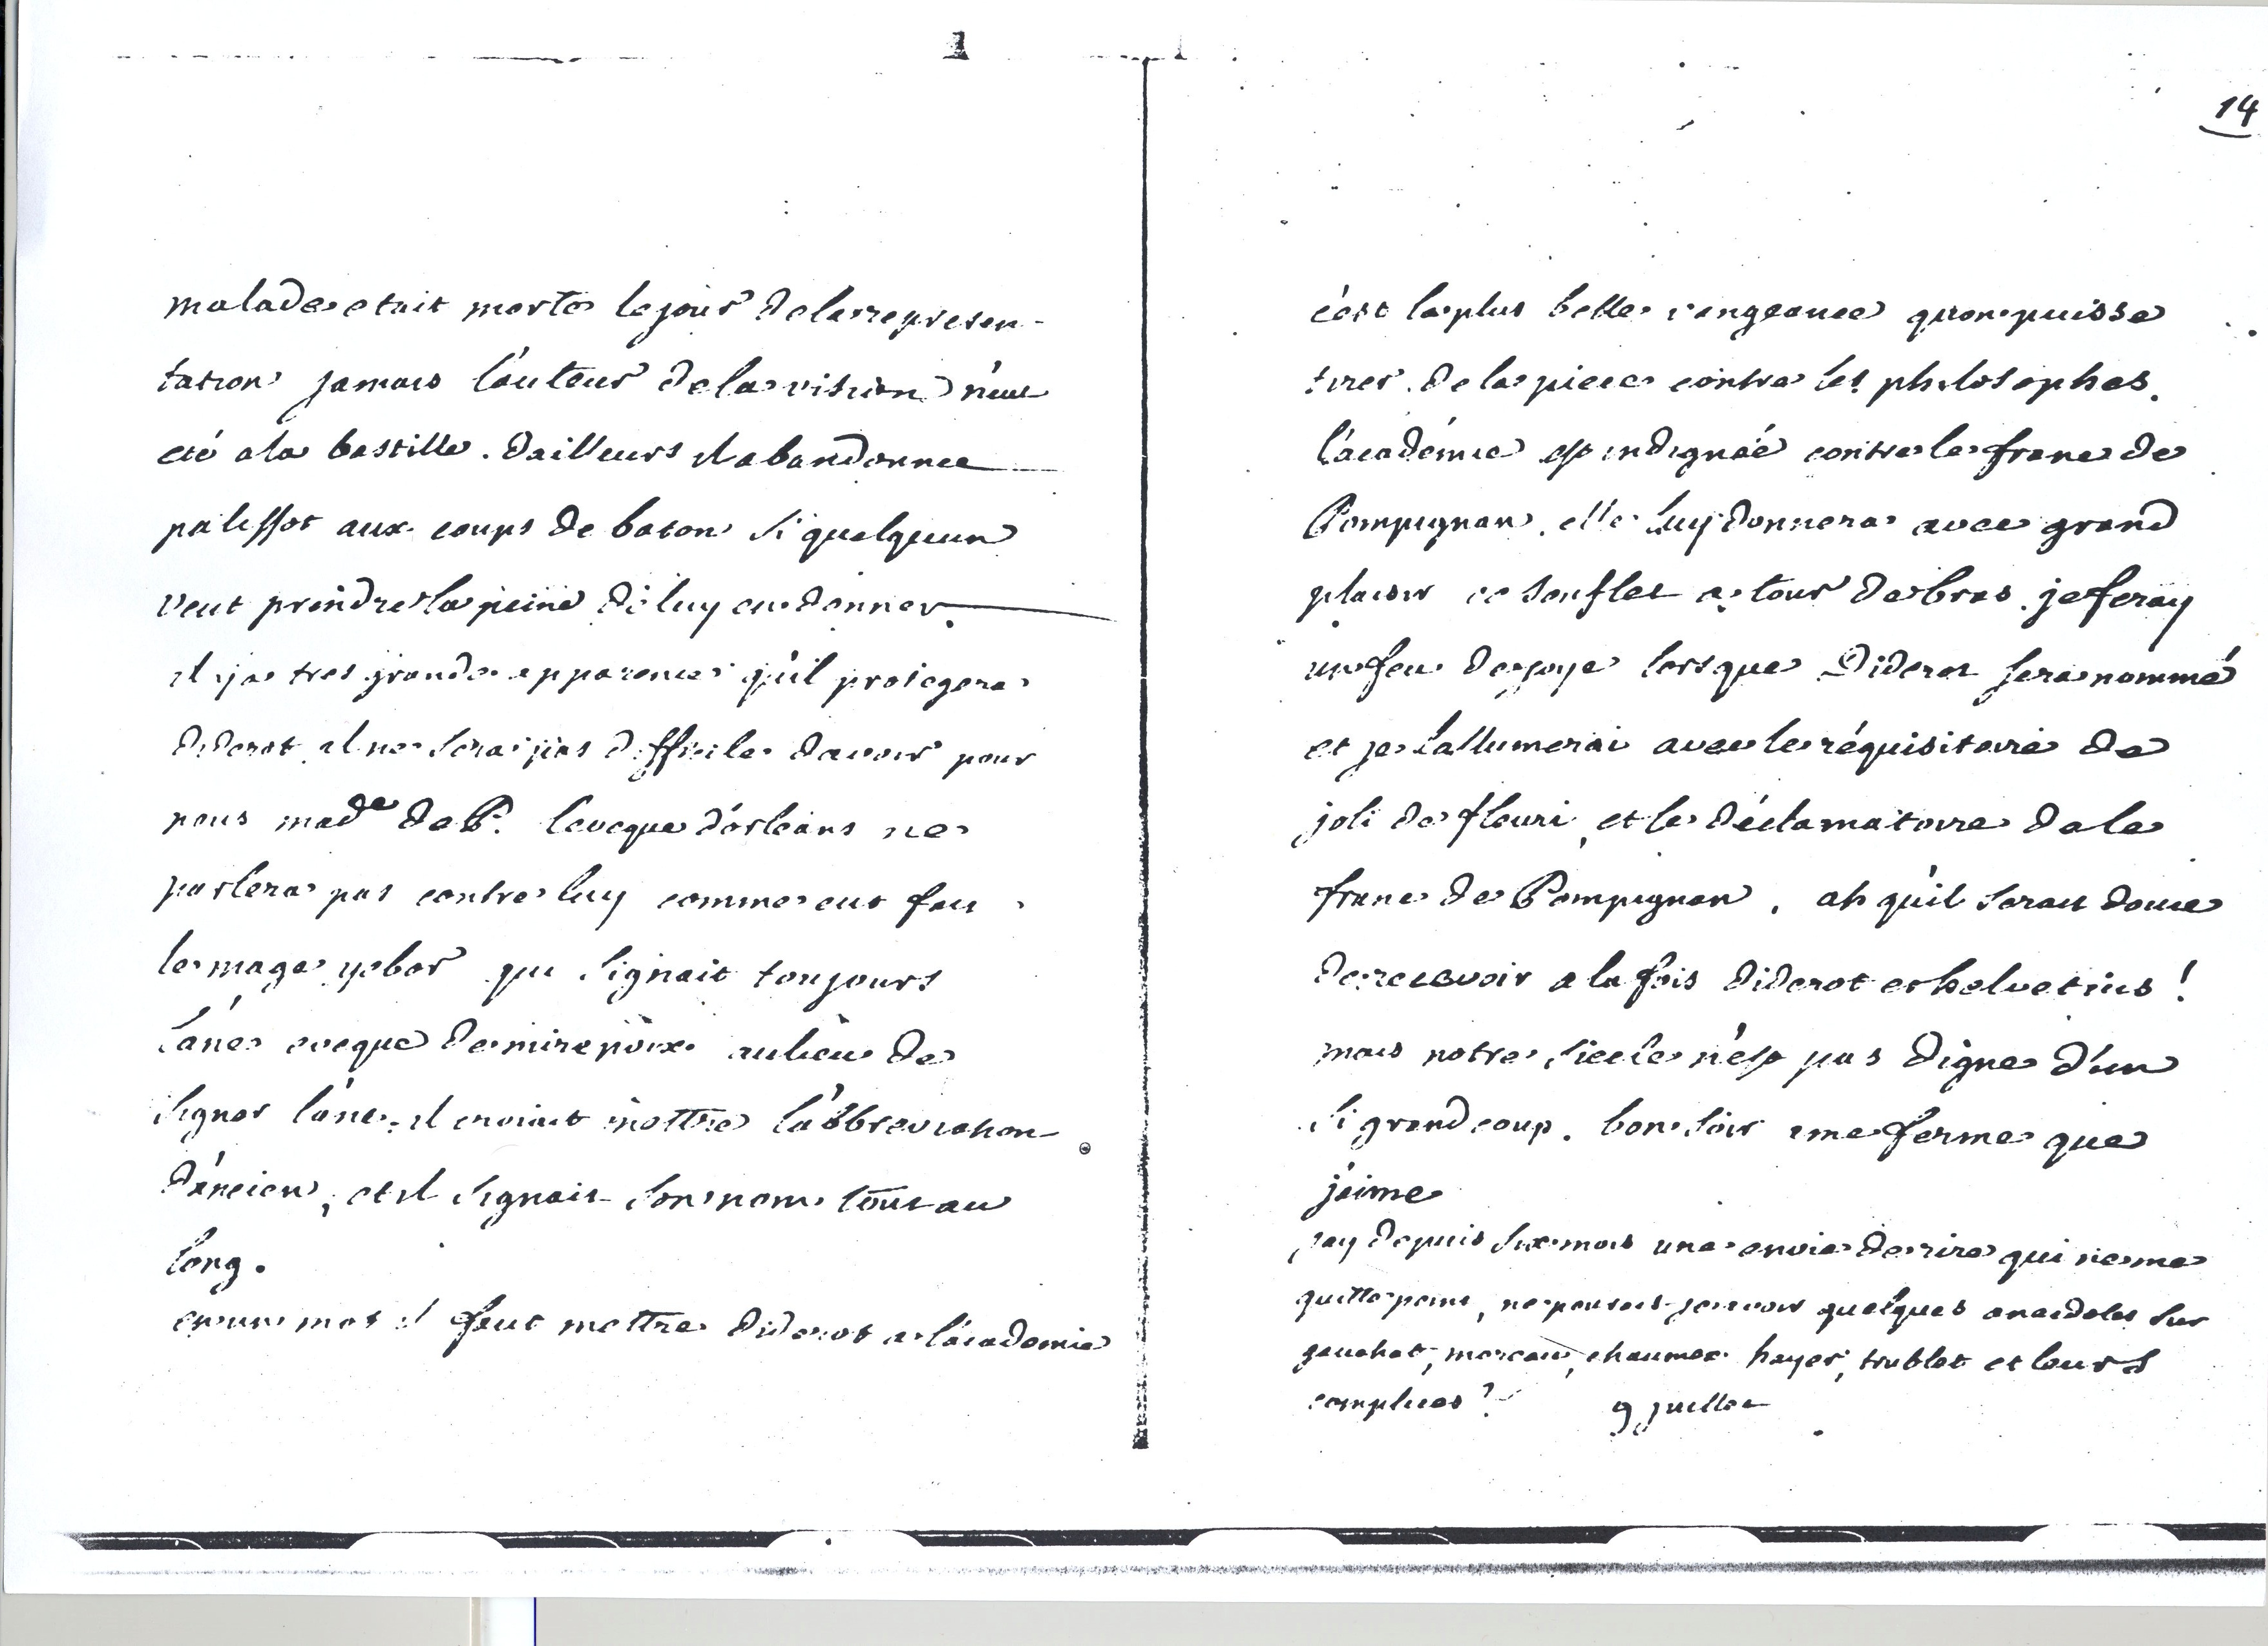 1
14
malade etait morte le jour de la represen-
tation jamais l'auteur de la vision n'eut
été a la bastille. dailleurs il abandonne
palissot aux coups de baton si quelquun
veut prendre la peine de luy en donner.
il y a tres grande apparence qu'il protegera
diderot. il ne sera pas difficile davoir pour
nous made de P. leveque d'orleans ne
parlera pas contre luy comme eut fait
le mage yebor qui signait toujours
l'ane eveque de mirepoix au lieu de
signer l'anc. il croiait mettre l'abbreviation
d'ancien, et il signait son nom tout au
long.
en un mot il faut mettre diderot a l'academie
c'est la plus belle vengeance quon puisse
tirer de la piece contre les philosophes.
l'académie est indignée contre le franc de
Pompignan. elle luy donnera avec grand
plaisir ce souflet a tour de bras. je feray
un feu de joye lorsque Diderot sera nommé
et je lallumerai avec le réquisitoire de
joli de fleuri, et le déclamatoire de le
franc de Pompignan. ah qu'il serait doux
de recevoir a la fois diderot et helvetius!
mais notre siecle n'est pas digne d'un
si grand coup. bon soir ame ferme que
j'aime
jay depuis six mois une envie de rire qui ne me
quitte point, ne pourais-je avoir quelques anecdotes sur
gauchat, moreau, chaumex hayer, trublet et leurs
complices? 9 juillet